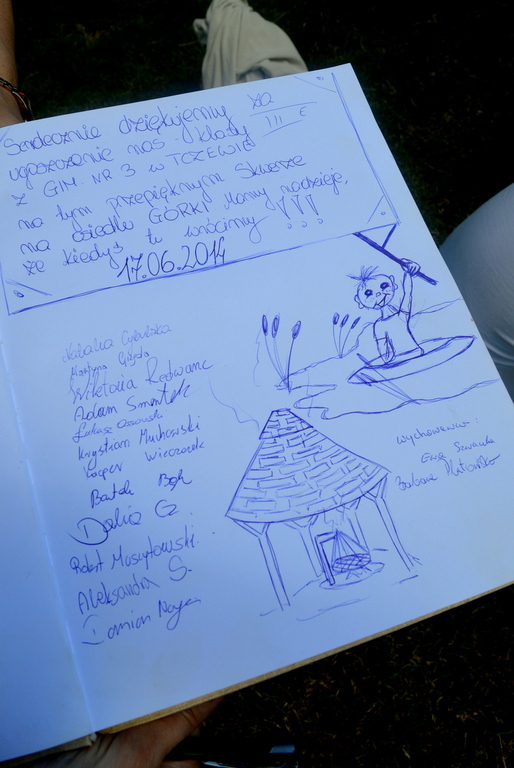 Serdecznie dziękujemy za
ugoszczenie nas - klasy III E
z GIM. NR 3 W TCZEWIE
na tym przepięknym Skwerze
na osiedlu GÓRKI. Mamy nadzieję,
że kiedyś tu wrócimy !!!
17.06.2014
Natalia Cybulska
Martyna
Wiktoria Redwanc
Adam Smentek
Łukasz Ossowski
Krystian Muchowski
Kacper Wieczorek
Bartek Bąk
Daria G.
Robert
Aleksandra S.
Damian
wychowawca:
Ewa
Barbara